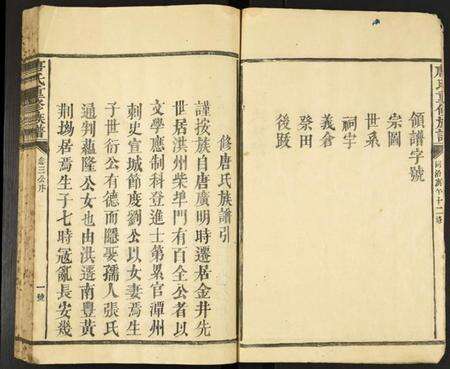 唐氏重修族譜
領譜字號
宗圖
世系
祠宇
義倉
祭田
後跋
修唐氏族譜引
謹按族自唐廣明時遷居金井先
世居洪州柴埠門有百全公者以
文學應制科登進士第累官潭州
刺史宣城節度劉公以女妻焉生
子世衍公有德而隱娶孺人張氏
通判蘊隆公女也由洪遷南豐黃
荆塲居焉生子七時寇亂長安幾
唐氏重修族譜
卷三公序
一號